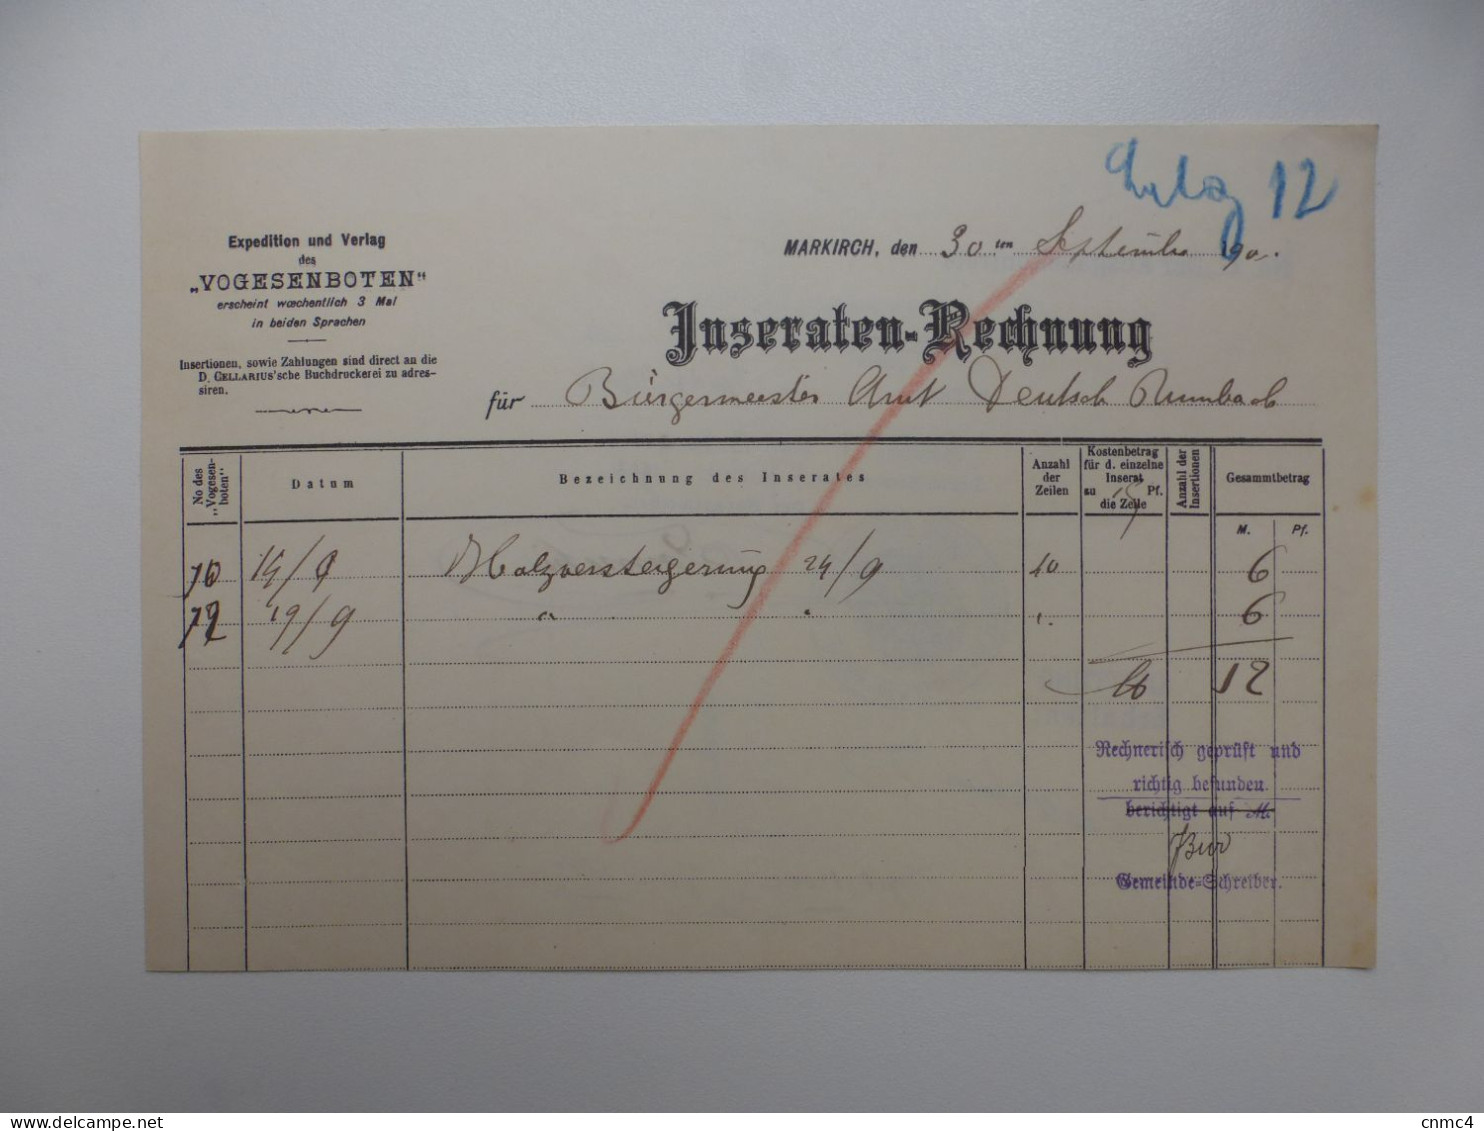 12
Expedition und Verlag
des
„VOGESENBOTEN"
erscheint wœchentlich 3 Mal
in beiden Sprachen
Insertionen, sowie Zahlungen sind direct an die
D. CELLARIUS'sche Buchdruckerei zu adres-
siren.
MARKIRCH, den 30 ten September 190
Inseraten-Rechnung
für Bürgermeister Amt Deutsch Rumbach
No des „Vogesen-boten"
Datum
Bezeichnung des Inserates
Anzahl der Zeilen
Kostenbetrag für d. einzelne Inserat zu 15 Pf. die Zeile
Anzahl der Insertionen
Gesammtbetrag
M. Pf.
70 14/9 Holzversteigerung 24/9 40 6
72 19/9 " " " 6
12
Rechnerisch geprüft und
richtig befunden
berichtigt auf M.
Gemeinde-Schreiber.
cnmc4